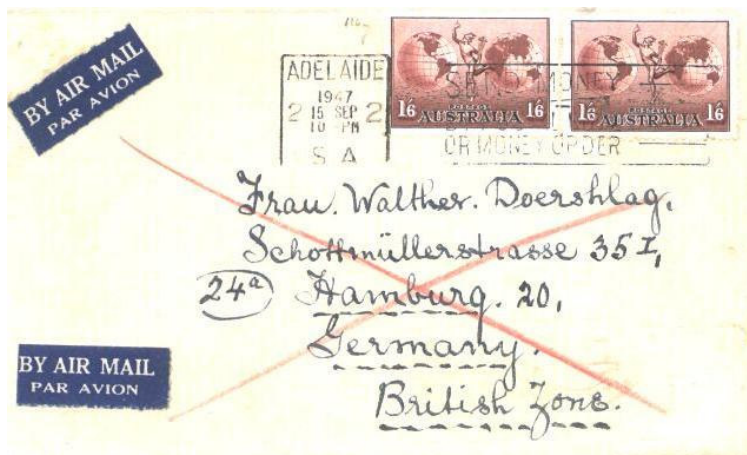 BY AIR MAIL
PAR AVION
ADELAIDE
1947
2 15 SEP 2
10 - PM
S A
SEND MONEY
OR MONEY ORDER
1/6 POSTAGE 1/6
AUSTRALIA
1/6 POSTAGE 1/6
AUSTRALIA
Frau. Walther. Doershlag,
Schottmüllerstrasse 35 I,
24ª Hamburg. 20,
Germany.
British Zone.
BY AIR MAIL
PAR AVION